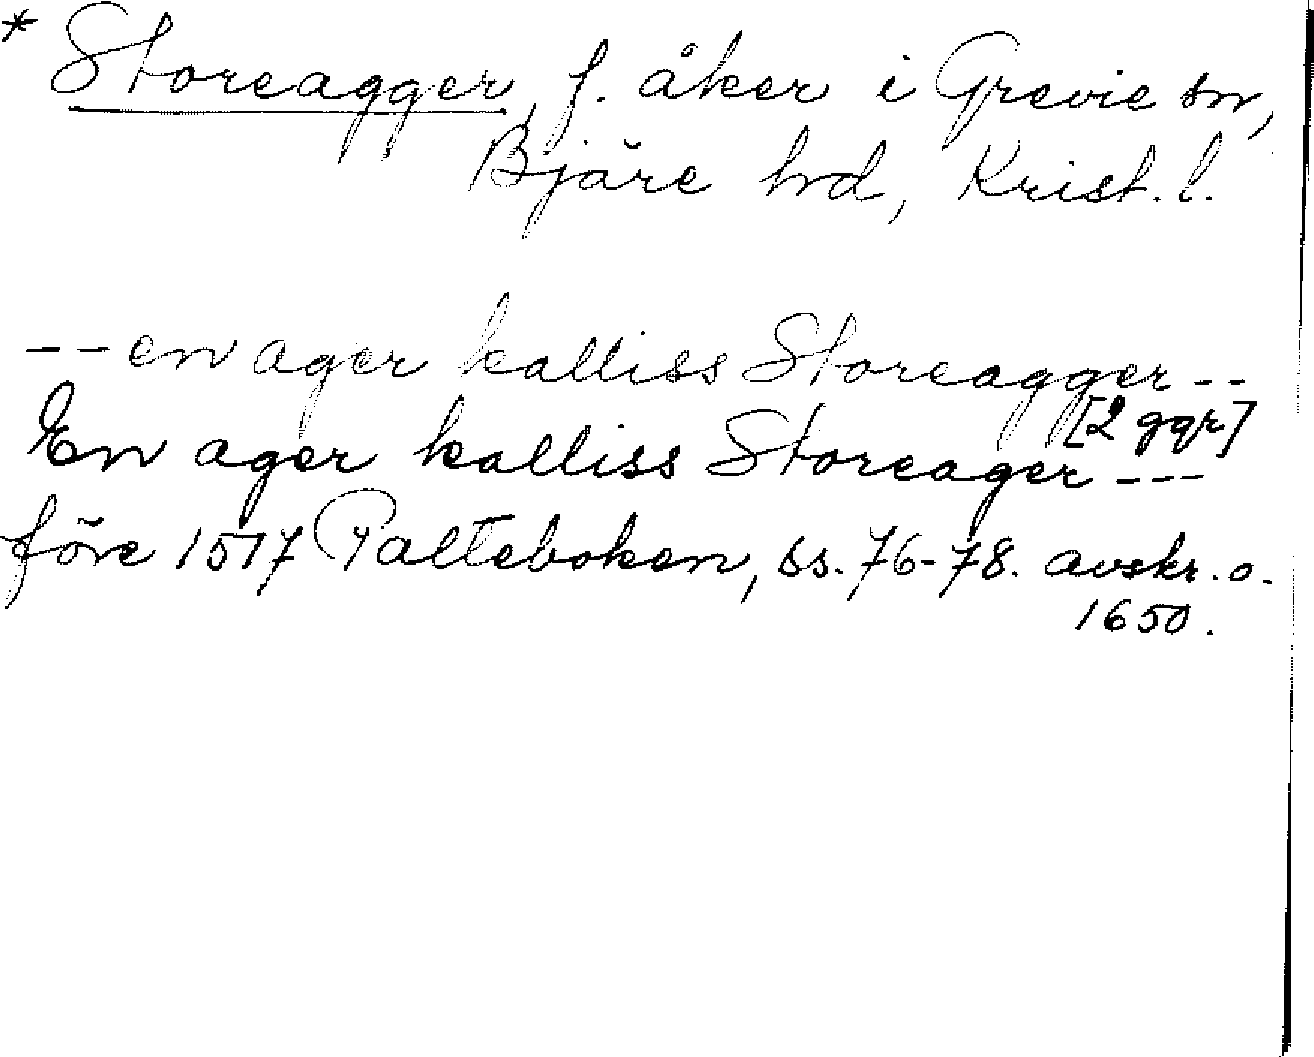 * Storeagger, f. åker i Grevie sn,
Bjäre hd, Krist. l.
-- en ager kalliss Storeagger --
[2 ggr]
En ager kalliss Storeager ---
före 1517 Palteboken, ss. 76-78. avskr. o.
1650.